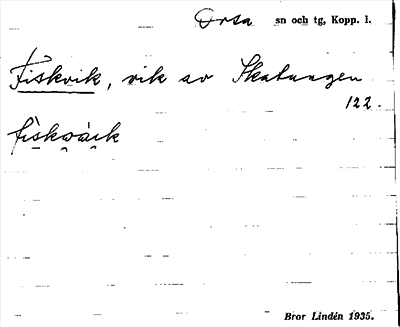 Orsa sn och tg, Kopp. l.
Fiskvik, vik av Skatungen
122.
Bror Lindén 1935.